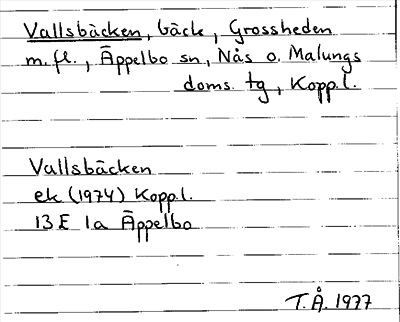 Vallsbäcken, bäck, Grossheden
m.fl., Äppelbo sn, Nås o. Malungs
doms. tg, Koppl.
Vallsbäcken
ek (1974) Koppl.
13 E 1a Äppelbo
T.Å. 1977